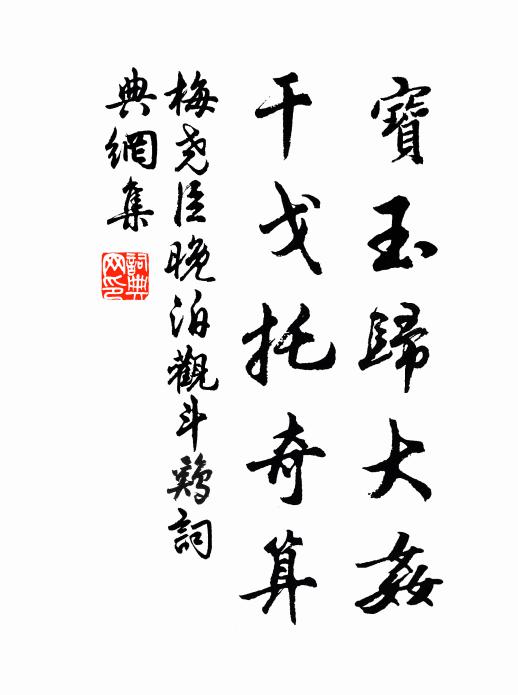 寶玉歸大姦
干戈托奇算
梅尧臣晚泊觀斗鷄詞
典網集
詞典
网印